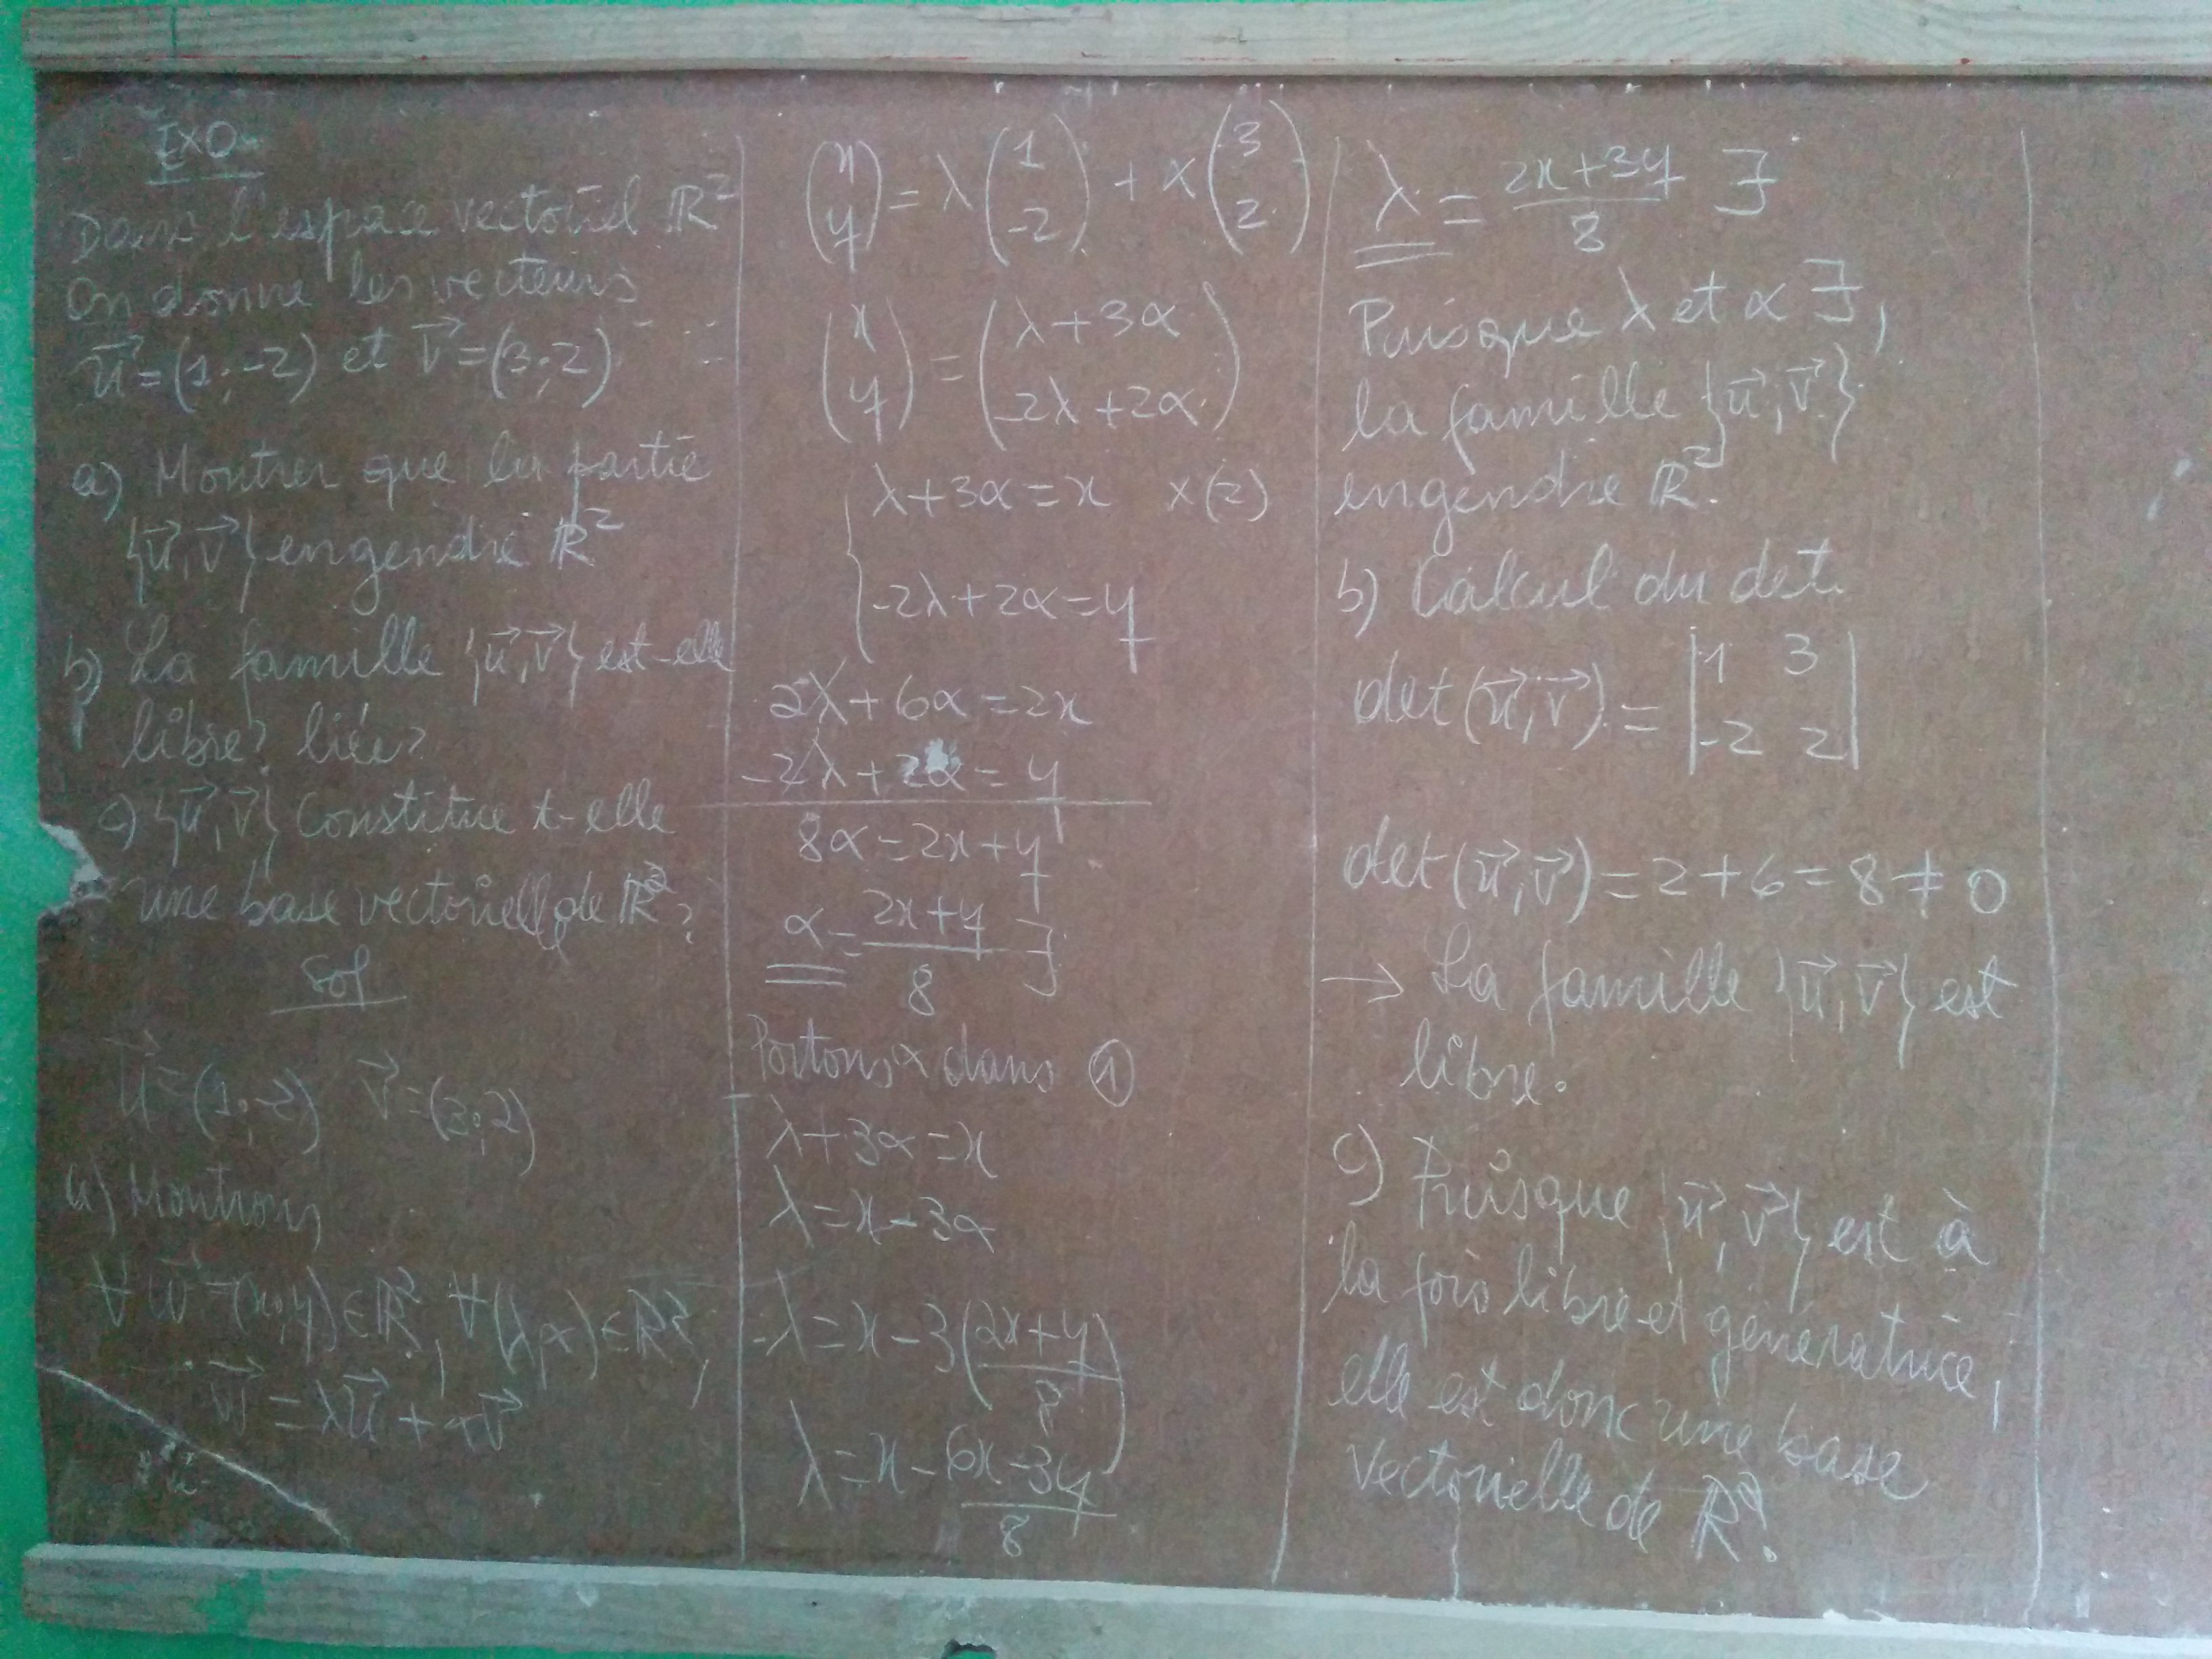 EXO
Dans l'espace vectoriel ℝ²
On donne les vecteurs
u⃗=(1;-2) et v⃗=(3;2)
a) Montrer que la partie
{u⃗,v⃗} engendre ℝ²
b) La famille {u⃗,v⃗} est-elle
libre? liée?
c) {u⃗,v⃗} Constitue t-elle
une base vectorielle de ℝ²?
Sol
u⃗=(1;-2) v⃗=(3;2)
a) Montrons
∀ w⃗=(x,y)∈ℝ², ∀(λ,α)∈ℝ²,
w⃗=λu⃗+αv⃗
(x y) = λ(1 -2) + α(3 2)
(x y) = (λ+3α -2λ+2α)
{ λ+3α=x ×(2)
-2λ+2α=y
2λ+6α=2x
-2λ+2α=y
8α=2x+y
α=(2x+y)/8 ∃
Portons α dans ①
λ+3α=x
λ=x-3α
λ=x-3((2x+y)/8)
λ=x-(6x-3y)/8
λ=(2x+3y)/8 ∃
Puisque λ et α ∃,
la famille {u⃗,v⃗}
engendre ℝ².
b) Calcul du det.
det(u⃗,v⃗)=|1 3 -2 2|
det(u⃗,v⃗)=2+6=8≠0
→ La famille {u⃗,v⃗} est
libre.
c) Puisque {u⃗,v⃗} est à
la fois libre et génératrice,
elle est donc une base
vectorielle de ℝ².